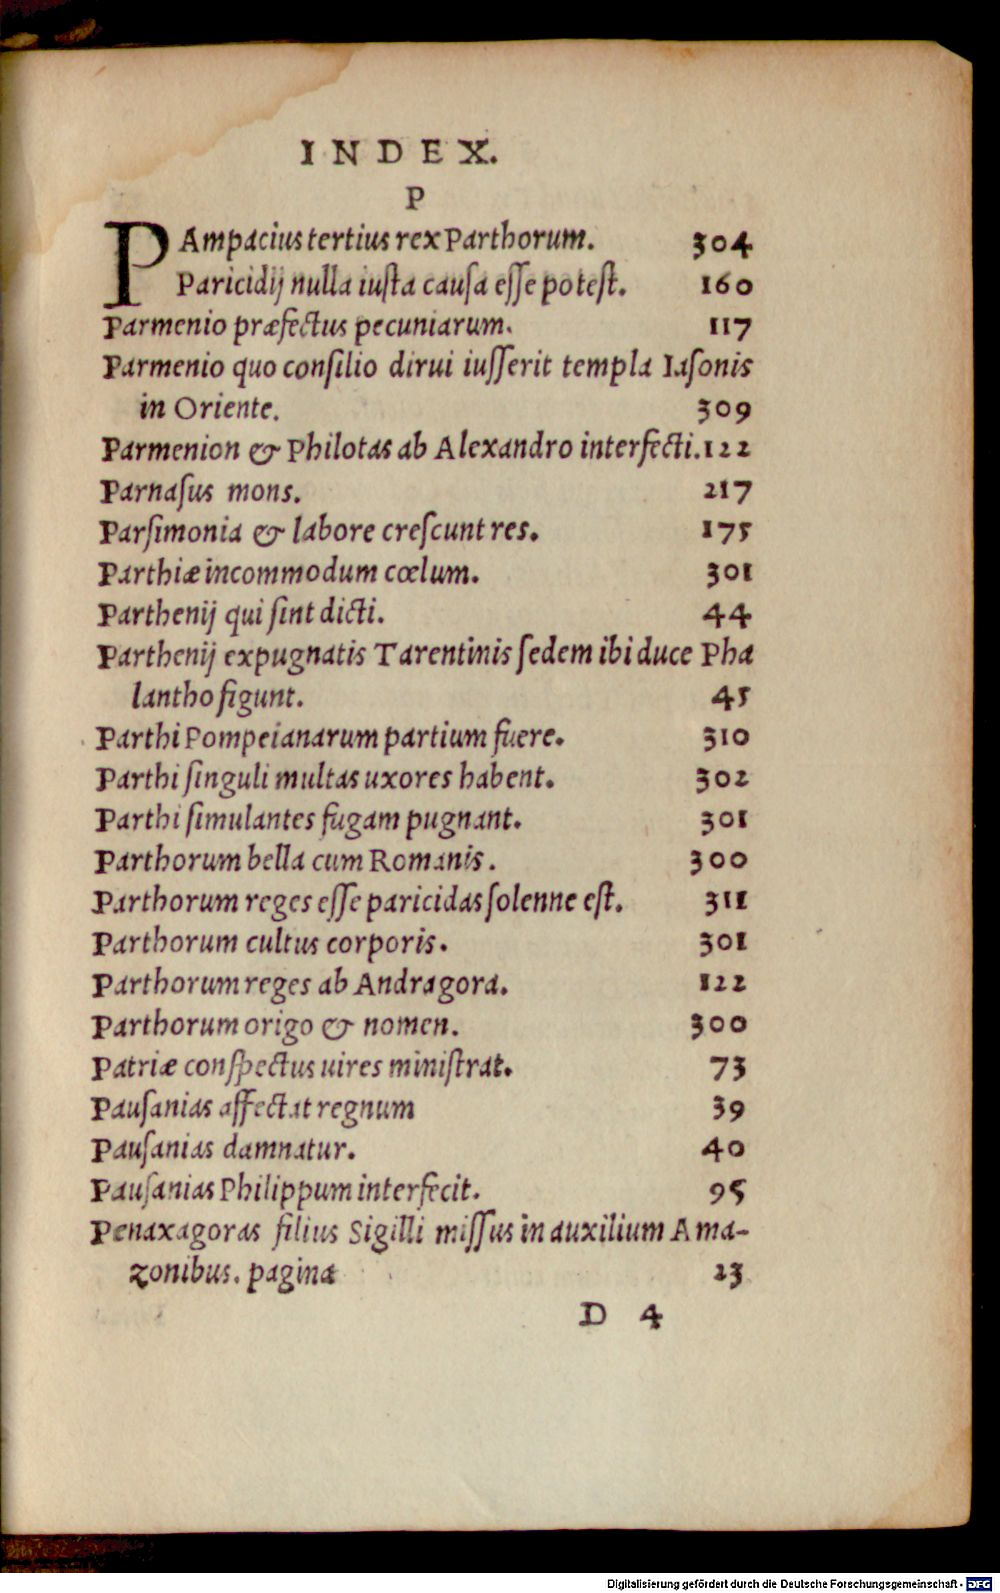 INDEX.
P
PAmpacius tertius rex Parthorum. 304
Paricidij nulla iusta causa esse potest. 160
Parmenio præfectus pecuniarum. 117
Parmenio quo consilio dirui iusserit templa Iasonis
in Oriente. 309
Parmenion & Philotas ab Alexandro interfecti. 122
Parnasus mons. 217
Parsimonia & labore crescunt res. 175
Parthiæ incommodum cœlum. 301
Parthenij qui sint dicti. 44
Parthenij expugnatis Tarentinis sedem ibi duce Pha
lantho figunt. 45
Parthi Pompeianarum partium fuere. 310
Parthi singuli multas uxores habent. 302
Parthi simulantes fugam pugnant. 301
Parthorum bella cum Romanis. 300
Parthorum reges esse paricidas solenne est. 311
Parthorum cultus corporis. 301
Parthorum reges ab Andragora. 122
Parthorum origo & nomen. 300
Patriæ conspectus uires ministrat. 73
Pausanias affectat regnum 39
Pausanias damnatur. 40
Pausanias Philippum interfecit. 95
Penaxagoras filius Sigilli missus in auxilium Ama-
zonibus. pagina 23
D 4
Digitalisierung gefördert durch die Deutsche Forschungsgemeinschaft - DFG